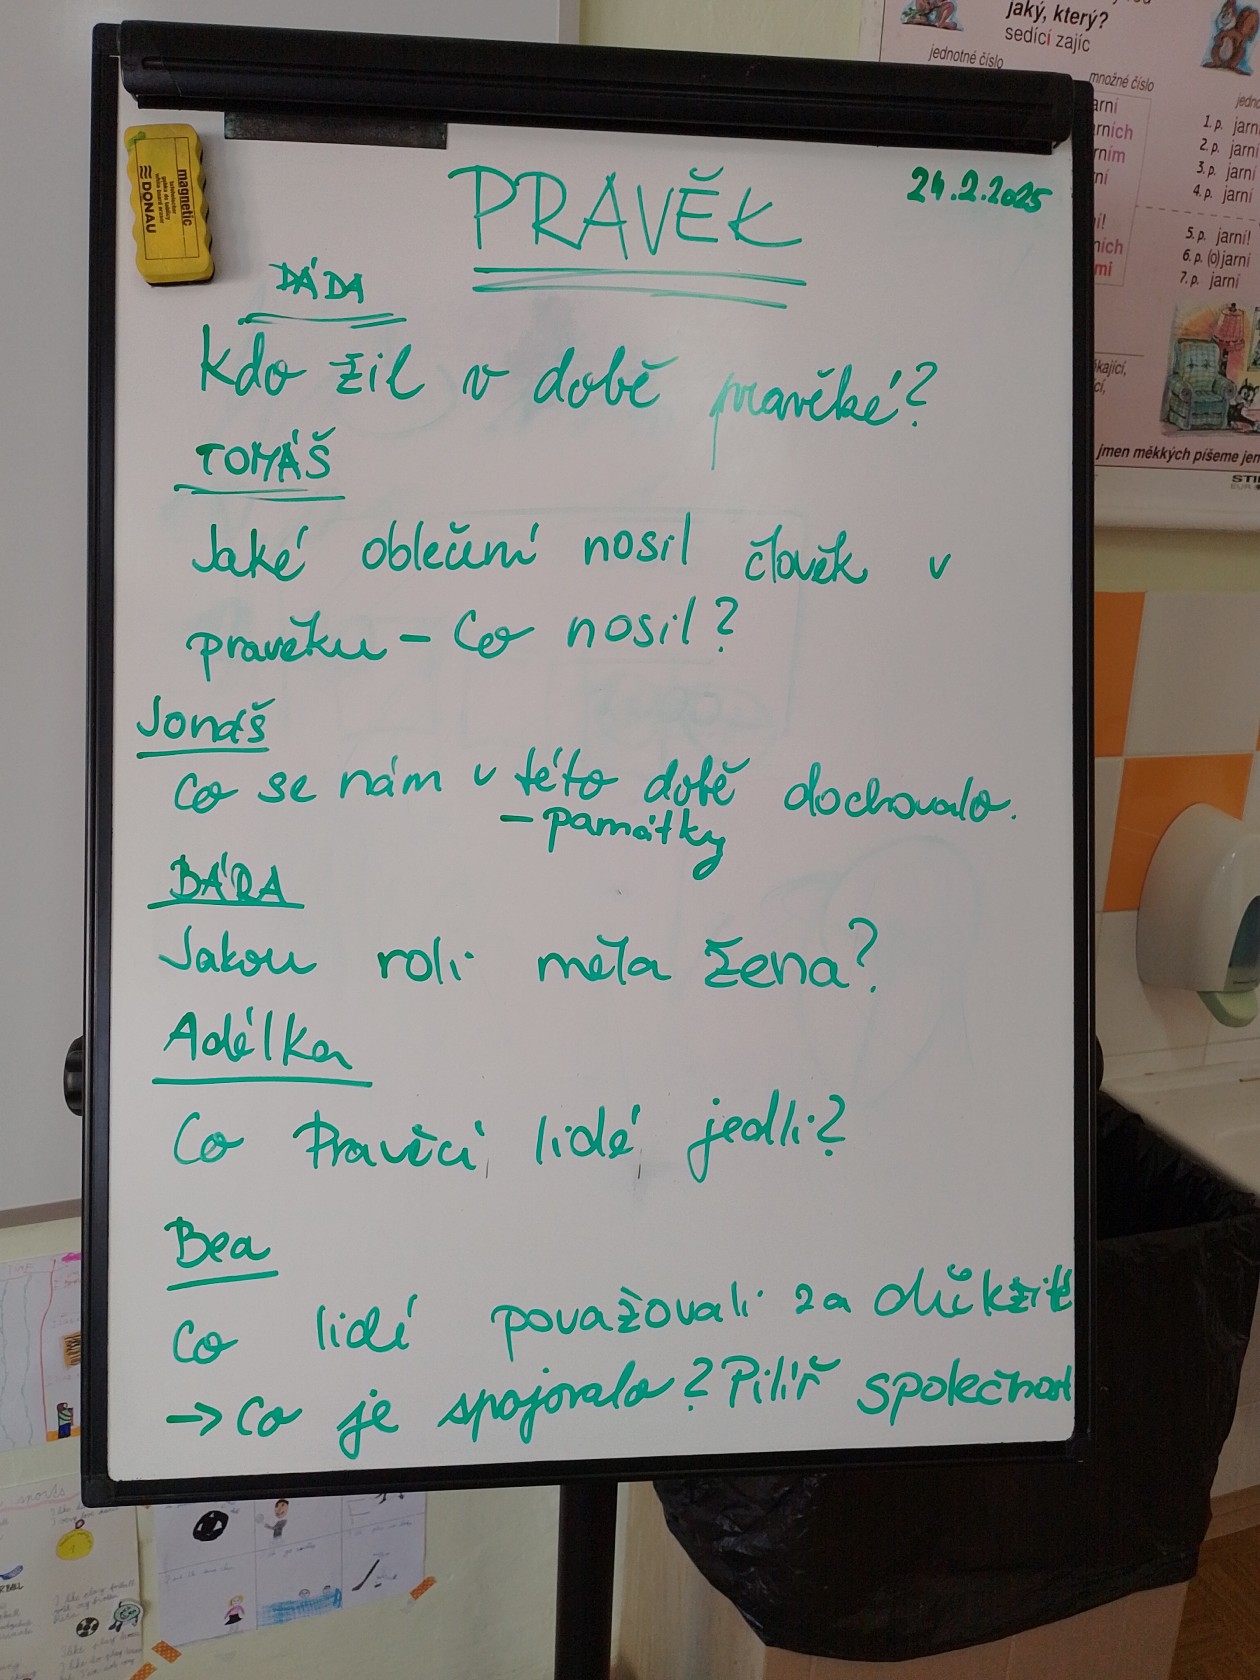 PRAVĚK
24.2.2025
DÁDA
Kdo žil v době pravěké?
TOMÁŠ
Jaké oblečení nosil člověk v
pravěku – Co nosil?
Jonáš
Co se nám v této době dochovalo.
– památky
BÁRA
Jakou roli měla žena?
Adélka
Co Pravěcí lidé jedli?
Bea
Co lidé považovali za důležité
→ Co je spojovalo? Pilíř společnost
magnetic
DONAU
jaký, který?
sedící zajíc
jednotné číslo
množné číslo
1. p. jarní
2. p. jarní
3. p. jarní
4. p. jarní
5. p. jarní!
6. p. (o) jarní
7. p. jarní
jmen měkkých píšeme jen